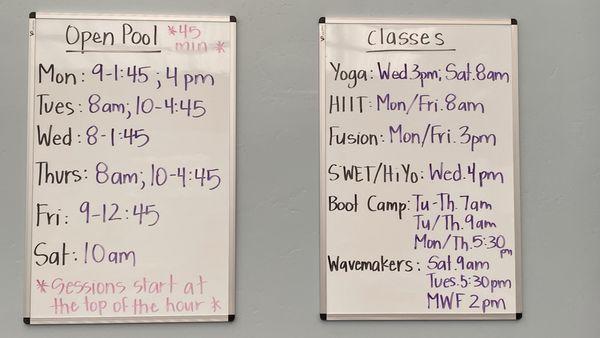 Open Pool *45
min *
Mon: 9-1:45; 4pm
Tues: 8am; 10-4:45
Wed: 8-1:45
Thurs: 8am; 10-4:45
Fri: 9-12:45
Sat: 10am
*Sessions start at
the top of the hour *
Classes
Yoga: Wed.3pm; Sat.8am
HIIT: Mon/Fri.8am
Fusion: Mon/Fri.3pm
SWET/HiYo: Wed.4pm
Boot Camp: Tu-Th.7am
Tu/Th.9am
Mon/Th.5:30pm
Wavemakers: Sat.9am
Tues.5:30pm
MWF 2pm